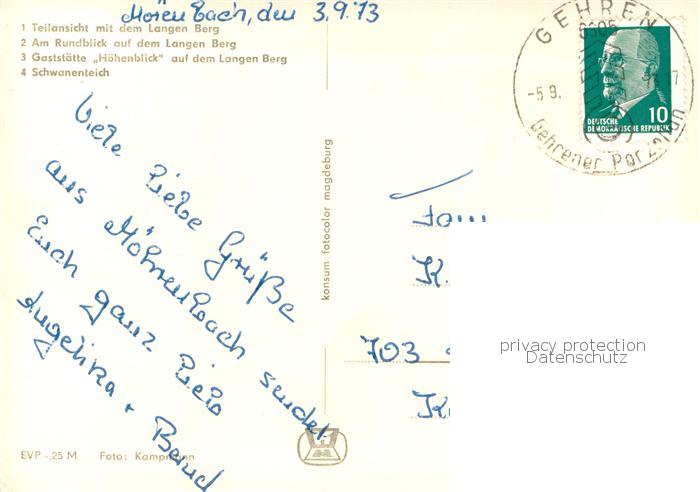 Möhrenbach, den 3.9.73
1 Teilansicht mit dem Langen Berg
2 Am Rundblick auf dem Langen Berg
3 Gaststätte „Höhenblick" auf dem Langen Berg
4 Schwanenteich
Viele liebe Grüße
aus Möhrenbach sendet
Euch ganz lieb
Angelika + Bernd
EVP -,25 M Foto: Kampmann
konsum fotocolor magdeburg
GEHREN
6305
-5.9.
17
Gehrener Porzellan
10
DEUTSCHE
DEMOKRATISCHE REPUBLIK
Fam
K.
703
privacy protection
Datenschutz